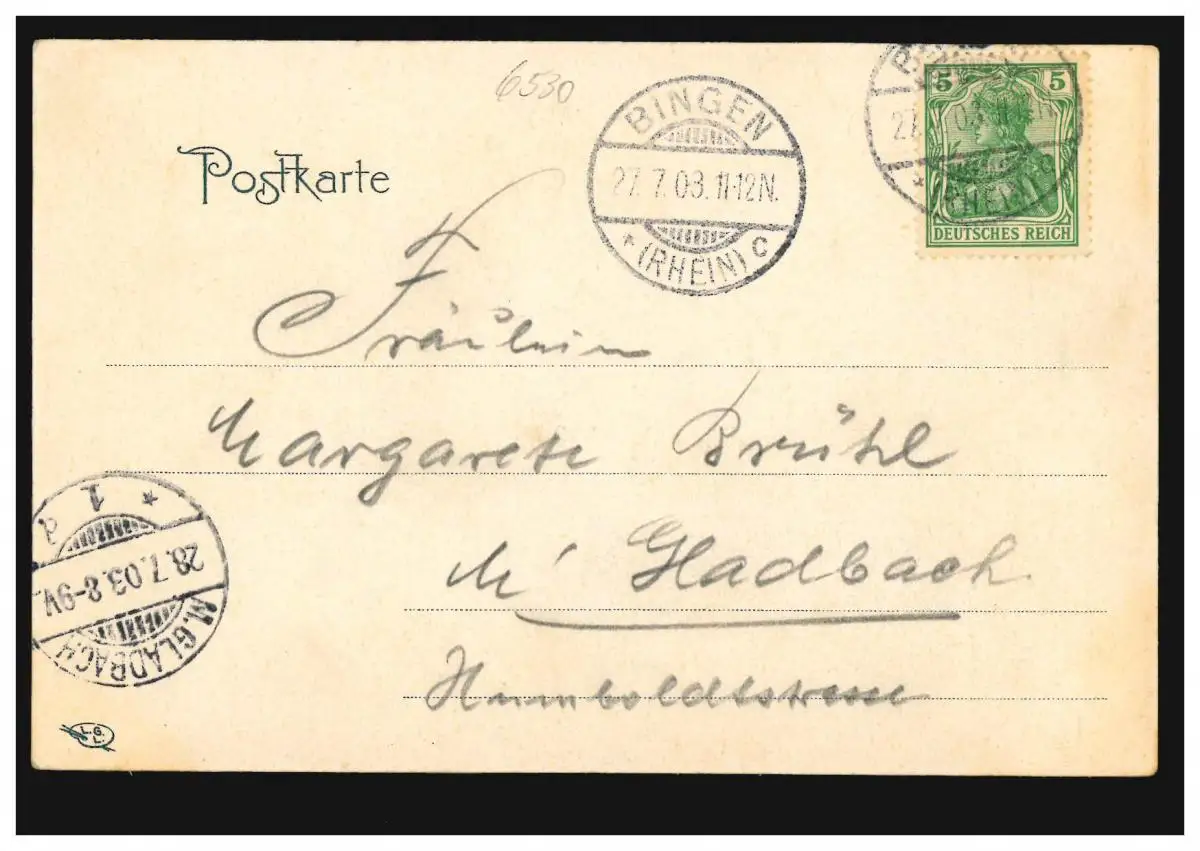 6530
Postkarte
BINGEN
27.7.03.11-12N.
* (RHEIN) c
5 5
DEUTSCHES REICH
Fräulein
Margarete Brühl
M' Gladbach
Humboldtstrasse
* 1 a
28.7.03.8-9V.
M. GLADBACH
L.G.
L.